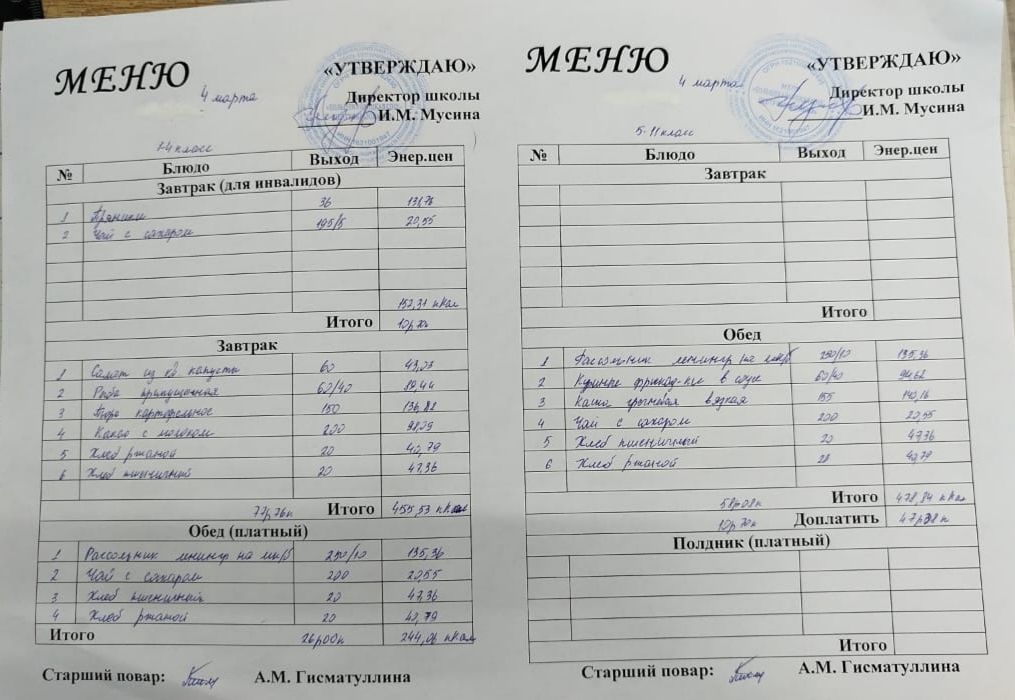 МЕНЮ
«УТВЕРЖДАЮ»
4 марта
Директор школы
И.М. Мусина
1-4 класс
№ Блюдо Выход Энер.цен
Завтрак (для инвалидов)
1 Пряники 36 131,76
2 Чай с сахаром 195/5 20,55
152,31 ккал
Итого 10р70к
Завтрак
1 Салат из капусты 60 43,23
2 Рыба припущенная 60/40 89,44
3 Пюре картофельное 150 136,82
4 Какао с молоком 200 98,09
5 Хлеб ржаной 20 40,79
6 Хлеб пшеничный 20 47,36
77р76к Итого 455,53 ккал
Обед (платный)
1 Рассольник ленингр на мкб 250/10 135,36
2 Чай с сахаром 200 20,55
3 Хлеб пшеничный 20 47,36
4 Хлеб ржаной 20 40,79
Итого 26р00к 244,06 ккал
Старший повар: А.М. Гисматуллина
МЕНЮ
«УТВЕРЖДАЮ»
4 марта
Директор школы
И.М. Мусина
5-11 класс
№ Блюдо Выход Энер.цен
Завтрак
Итого
Обед
1 Рассольник ленингр на мкб 250/10 135,36
2 Куриные в соусе 60/40 94,62
3 Каша вязкая 155 140,16
4 Чай с сахаром 200 20,55
5 Хлеб пшеничный 20 47,36
6 Хлеб ржаной 28 40,79
58р08к Итого 478,84 ккал
10р70к Доплатить 47р38к
Полдник (платный)
Итого
Старший повар: А.М. Гисматуллина